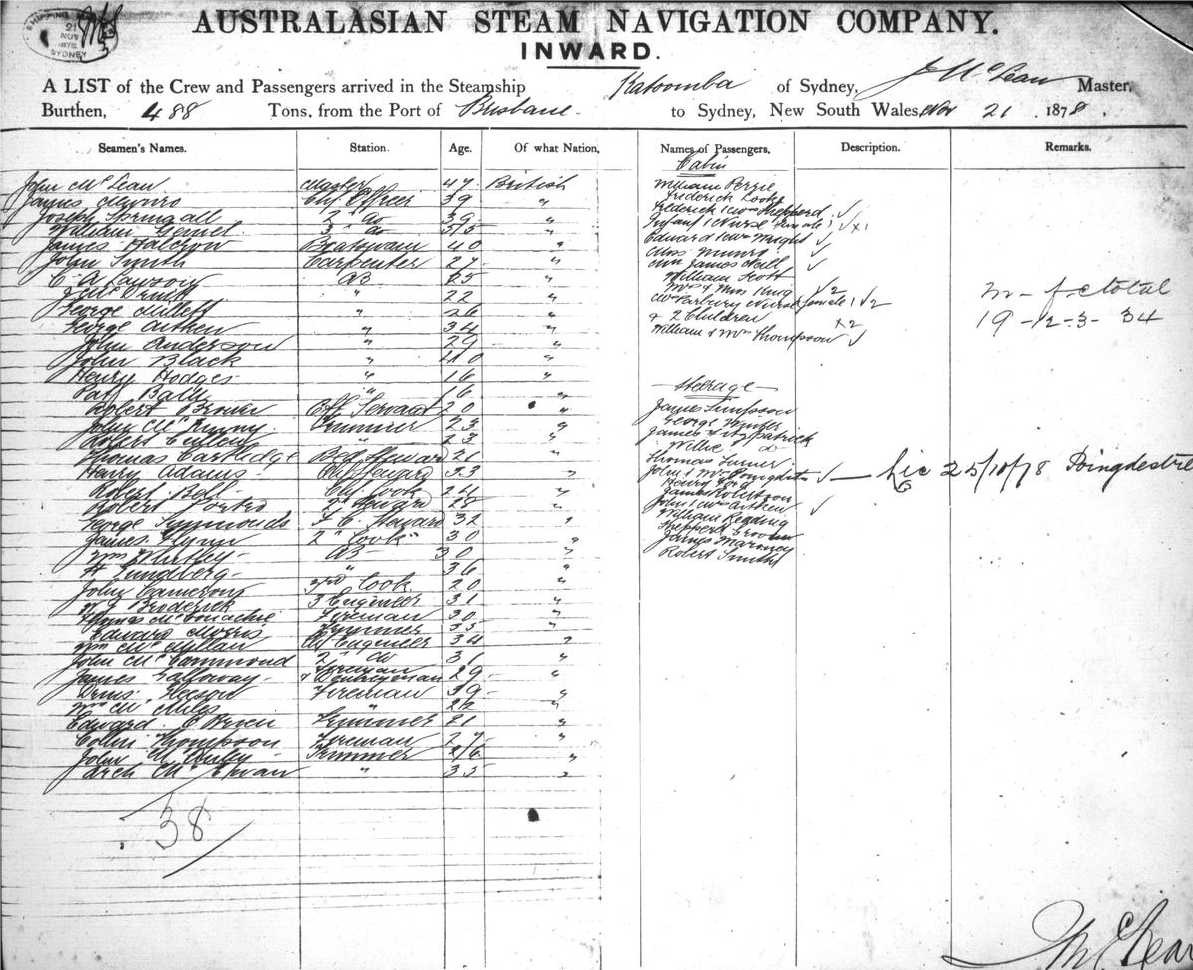 SHIPPING
NOV
SYDNEY
AUSTRALASIAN STEAM NAVIGATION COMPANY.
INWARD.
A LIST of the Crew and Passengers arrived in the Steamship Katoomba of Sydney, J McLean Master,
Burthen, 488 Tons, from the Port of Brisbane to Sydney, New South Wales, Nov 21 1878.
Seamen's Names. Station. Age. Of what Nation, Names of Passengers, Description. Remarks.
Cabin
John McLean Master 47 British William Perrie
James Munro Chf Officer 39 " Frederick
Joseph Springall 2" do 39 " Frederick & Mrs Shepperd
William 3" do " Infant & Nurse female 1
James Halcrow Boatswain 40 " Edward & Mrs Wright
John Smith Carpenter 27 " Miss Munro
C A Lawson AB 25 " James Neill
William Scott
" 22 " Mr & Mrs King 2
George " 26 " Nurse female 1 2
& 2 Children x2
m - f - c total
19 - 12 - 3 - 34
George Aitken " 34 " William & Mrs Thompson
John Anderson " 29 "
John Black " 40 "
Henry Hodges " 16 "
Ball " 16 "
Steerage
Robert Servant 20 " James Simpson
John Trimmer 23 " George Winter
Robert Cullen " 23 " James Fitzpatrick
Willie do
Thomas Cartledge Steward 21 " Thomas Turner
Henry Adams Steward 33 " John & Mrs Poingdestre Lic 25/10/78 Poingdestre
Henry Ford
Robert Bell Chf Cook " James Robertson
Robert Porter 2" Steward 28 " John & Mrs Aitken
George Symmonds F. C. Steward 32 " William Redding
James Flynn 2" Cook 30 " Shepperd
James Maroney
Wm AB 30 " Robert Smith
Lundberg " 36 "
John Cameron 3rd Cook 20 "
Broderick 3 Engineer 31 "
Thomas McConachie Fireman 30 "
Edward Morris Trimmer 35 "
Wm McMillan Ch Engineer 34 "
John McCammond 2" do 31 "
James Galloway Fireman & Donkeyman 29 "
Denis Gleeson Fireman 39 "
Wm " "
Edward O'Brien Trimmer 21 "
Collin Thompson Fireman 27 "
John Trimmer 26 "
Arch McEwan " 35 "
38
J McLean